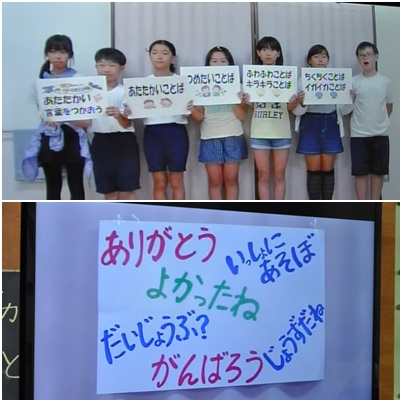 あたたかい
言葉をつかおう
あたたかいことば
つめたいことば
ふわふわことば
キラキラことば
ちくちくことば
イガイガことば
HURLEY
ありがとう
いっしょに
あそぼ
よかったね
だいじょうぶ?
じょうずだね
がんばろう
か
と